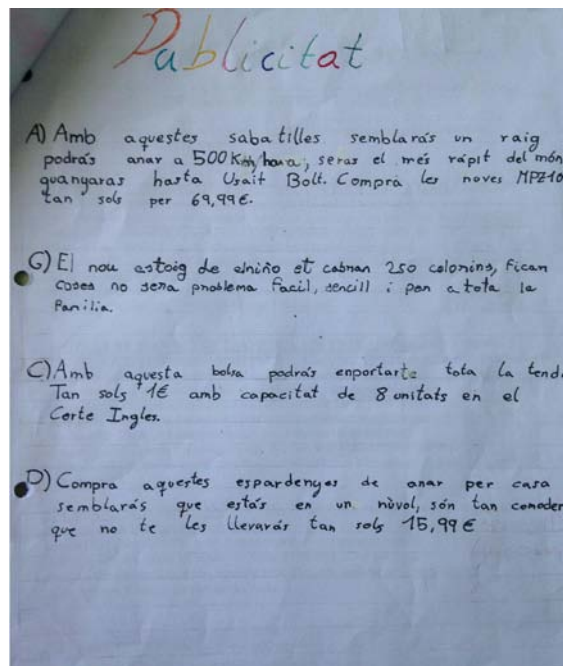 Publicitat
A) Amb aquestes sabatilles semblarás un raig
podrás anar a 500 Km/hora, seras el més rápit del món
guanyaras hasta Usait Bolt. Compra les noves MPZ10
tan sols per 69,99€.
G) El nou estoig de elniño et cabran 250 colorins, fican
coses no sera problema facil, sencill i per a tota la
familia.
C) Amb aquesta bolsa podrás enportarte tota la tend
Tan sols 1€ amb capacitat de 8 unitats en el
Corte Ingles.
D) Compra aquestes espardenyes de anar per casa
semblarás que estás en un núvol, són tan comoder
que no te les llevarás tan sols 15,99€